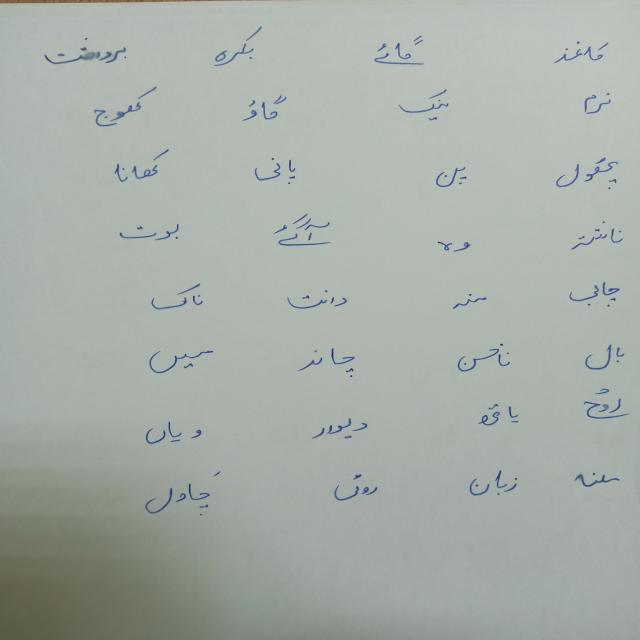 کاغذ گائے بکرہ
نرم نیک گاؤ کھوج
پھول پن پانی کھانا
ناشتہ وہ آگے بوت
چابی منہ دانت ناک
بال ناخن چاند سیس
روح دیوار وہاں
سنہ زبان روٹی چاول